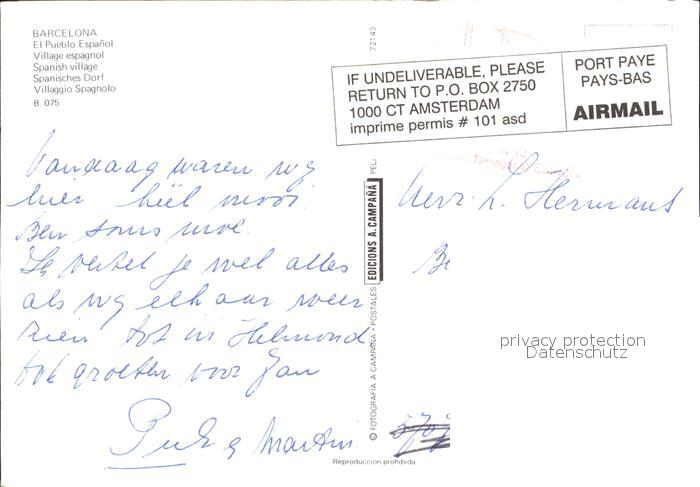 BARCELONA
El Pueblo Español
Village espagnol
Spanish village
Spanisches Dorf
Villaggio Spagnolo
B. 075
Vandaag waren wij
hier heel mooi.
Ben soms moe.
Ik vertel je wel alles
als wij elkaar weer
zien tot in Helmond
ook groeten voor Jan
Martin
72143
EDICIONS A. CAMPAÑÁ
© FOTOGRAFIA A. CAMPAÑA • POSTALES
Reproduccion prohibida
IF UNDELIVERABLE, PLEASE
RETURN TO P.O. BOX 2750
1000 CT AMSTERDAM
imprime permis # 101 asd
PORT PAYE
PAYS-BAS
AIRMAIL
L. Hermans
privacy protection
Datenschutz